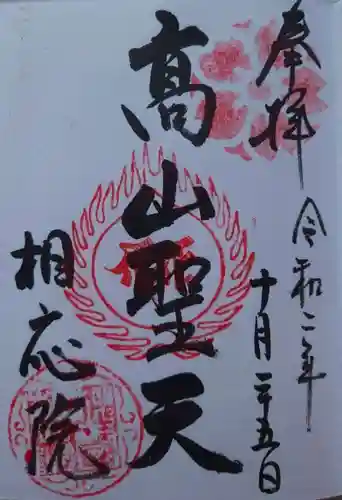 奉拝
令和二年
十月二十五日
髙山聖天
相応院